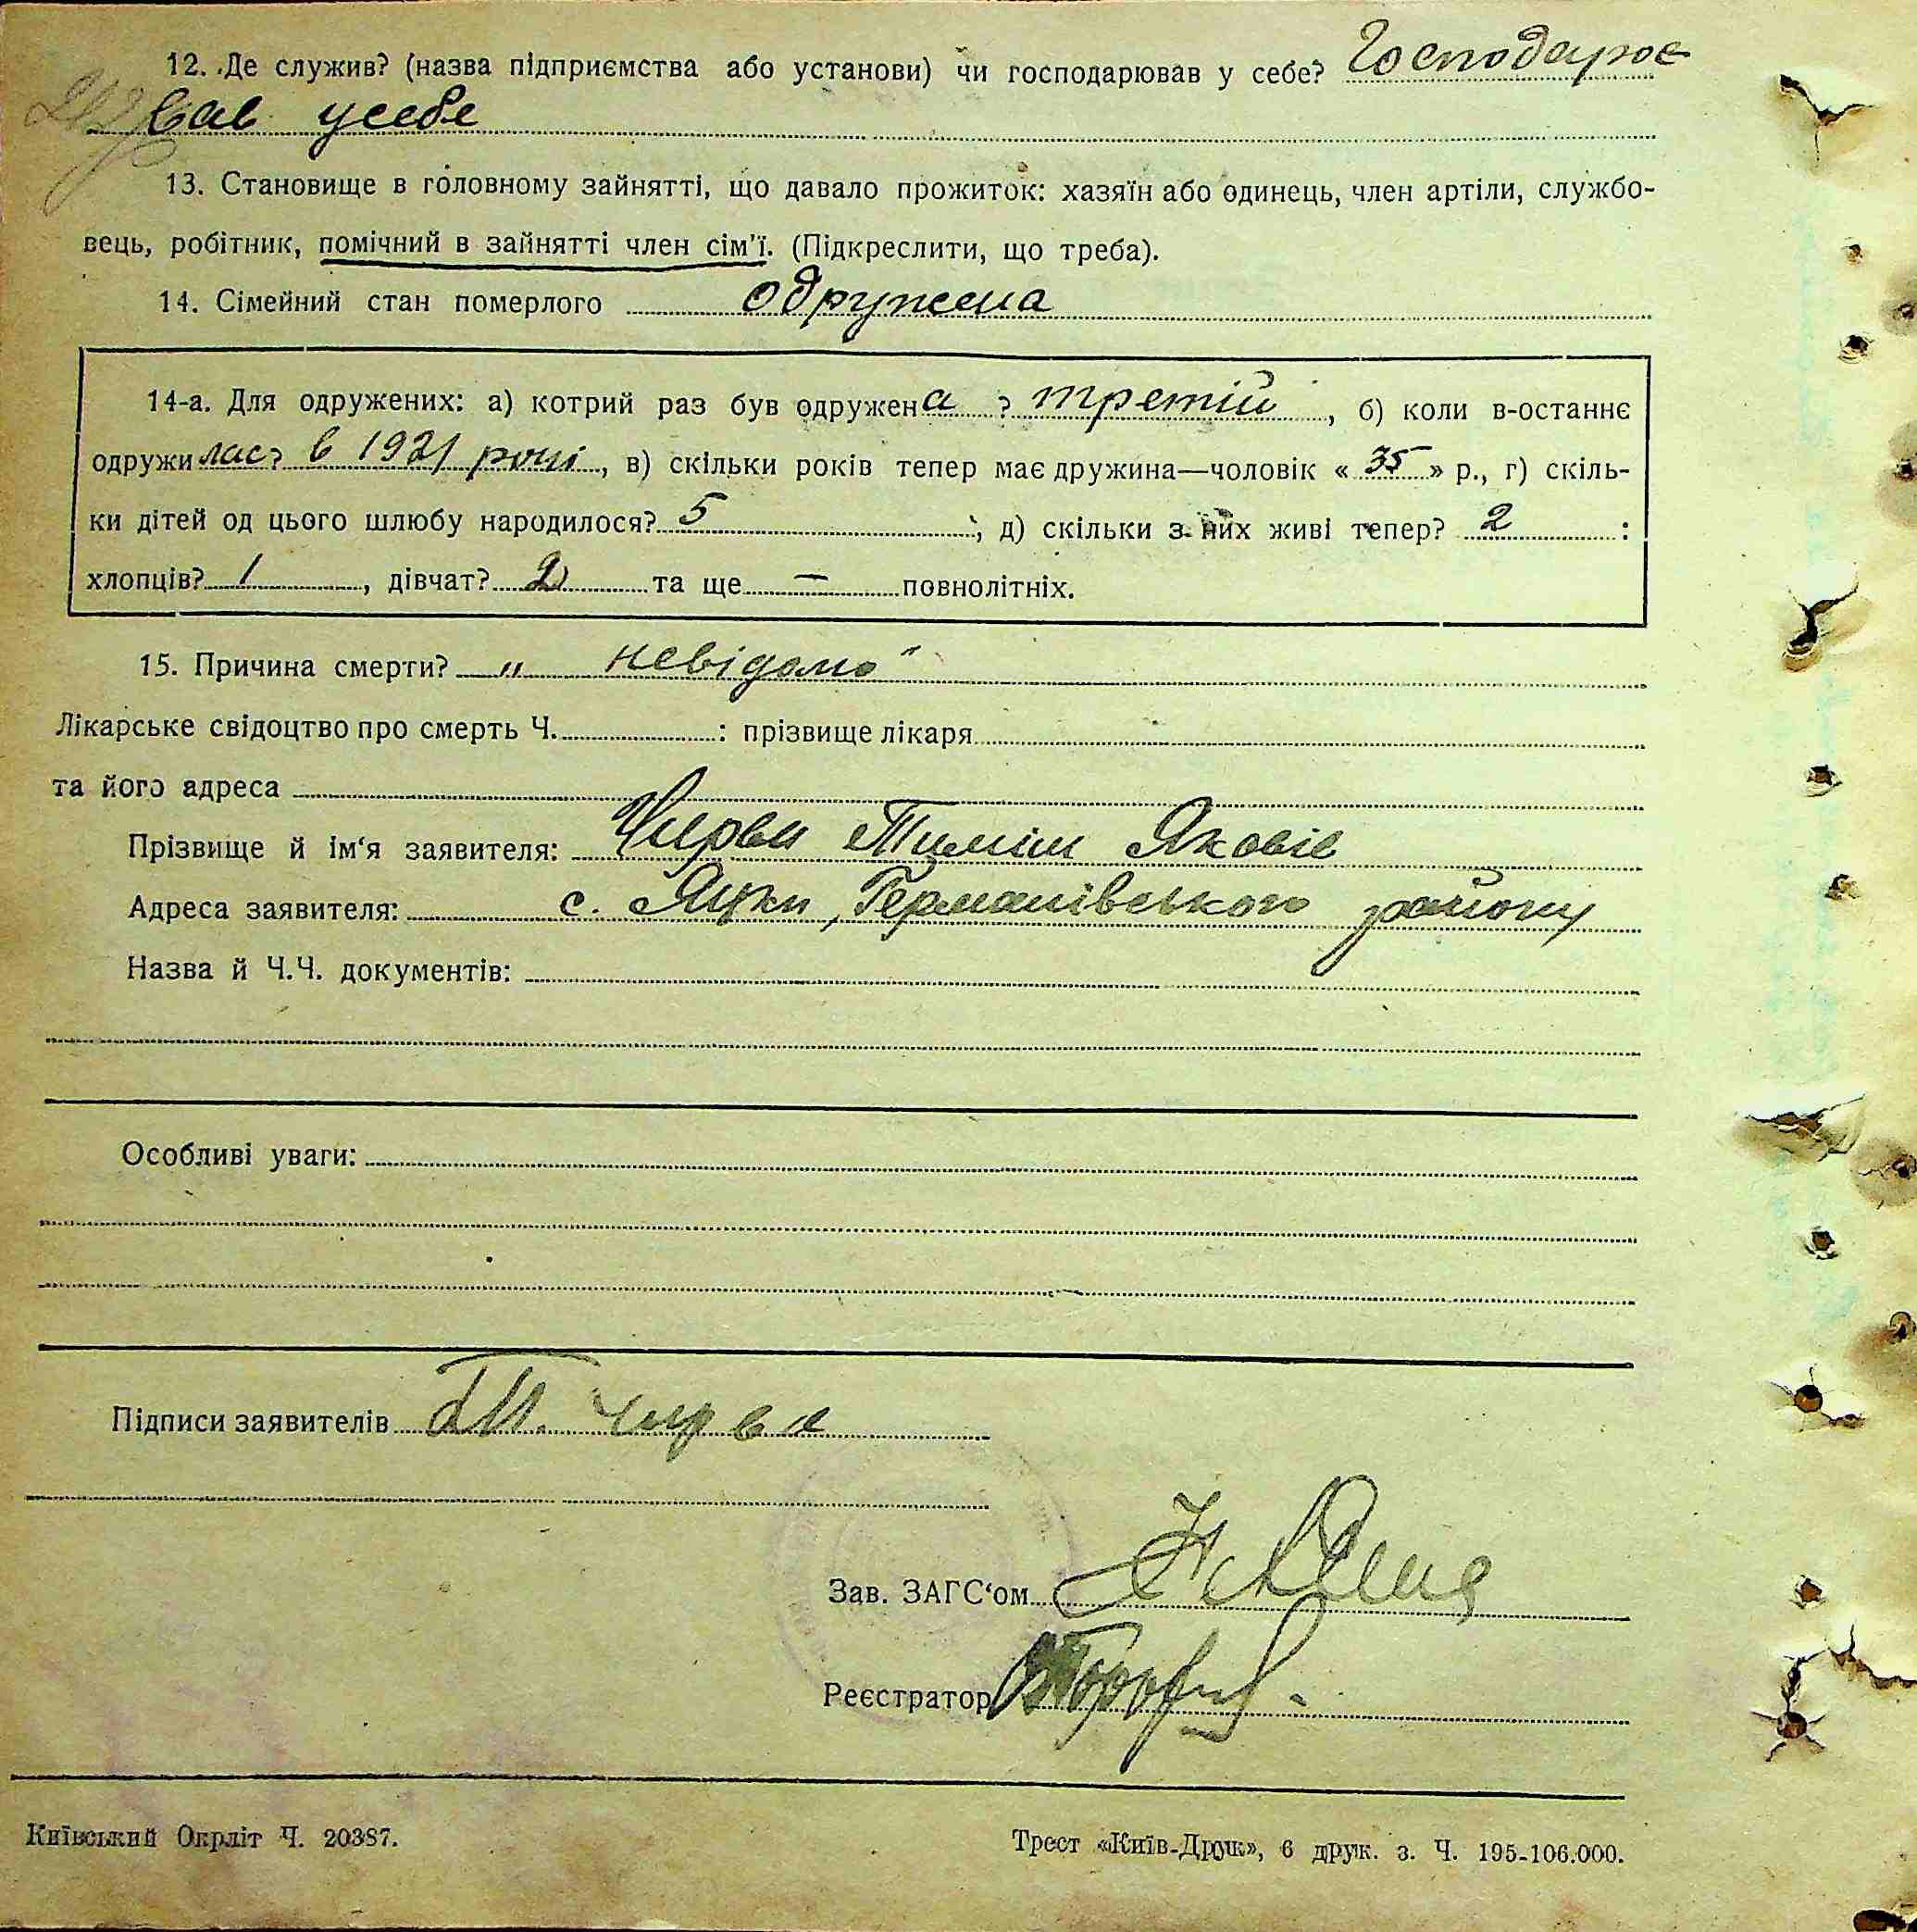 12. Де служив? (назва підприємства або установи) чи господарював у себе? Господарює
вав усебе
13. Становище в головному зайнятті, що давало прожиток: хазяїн або одинець, член артіли, службо-
вець, робітник, помічний в зайнятті член сім'ї. (Підкреслити, що треба).
14. Сімейний стан померлого одружена
14-а. Для одружених: а) котрий раз був одружена ? третій , б) коли в-останнє
одружилас? в 1921 році , в) скільки років тепер має дружина—чоловік « 35 » р., г) скіль-
ки дітей од цього шлюбу народилося? 5 ; д) скільки з них живі тепер? 2 :
хлопців? 1 , дівчат? 2 та ще — повнолітніх.
15. Причина смерти? „ невідомо“
Лікарське свідоцтво про смерть Ч. : прізвище лікаря
та його адреса
Прізвище й ім‘я заявителя: Чирва Тиміш Яковів
Адреса заявителя: с. Яцки, Германівського району
Назва й Ч.Ч. документів:
Особливі уваги:
Підписи заявителів Т. Чирва
Зав. ЗАГС‘ом
Реєстратор
Київський Окрліт Ч. 20387.
Трест «Київ-Друк», 6 друк. з. Ч. 195-106.000.